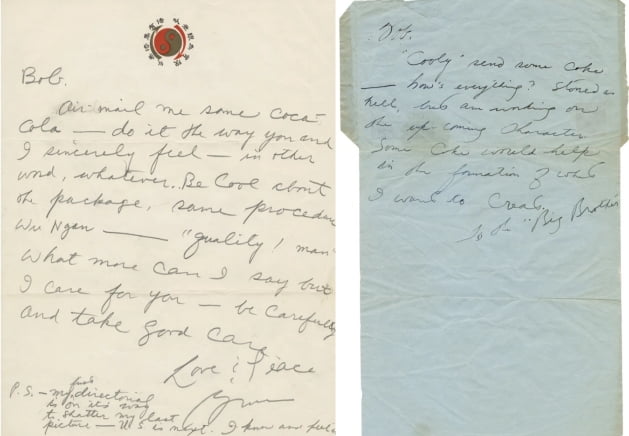 Bob.
Air mail me some coca-
cola — do it the way you and
I sincerely feel — in other
word, whatever. Be Cool about
the package, same procedure
Wu Ngan — "quality! man"
What more can I say but
I care for you — be carefully
and take good care
Love & Peace
P.S. — my first directorial
is on its way
to shatter my last
picture — U.S is next. I know and feel
Bob.
"Cooly" send some coke
— how's everything? Stoned as
hell, but am working on
the up coming character
Some Coke would help
in the formation of what
I want to create.
"Big Brother"